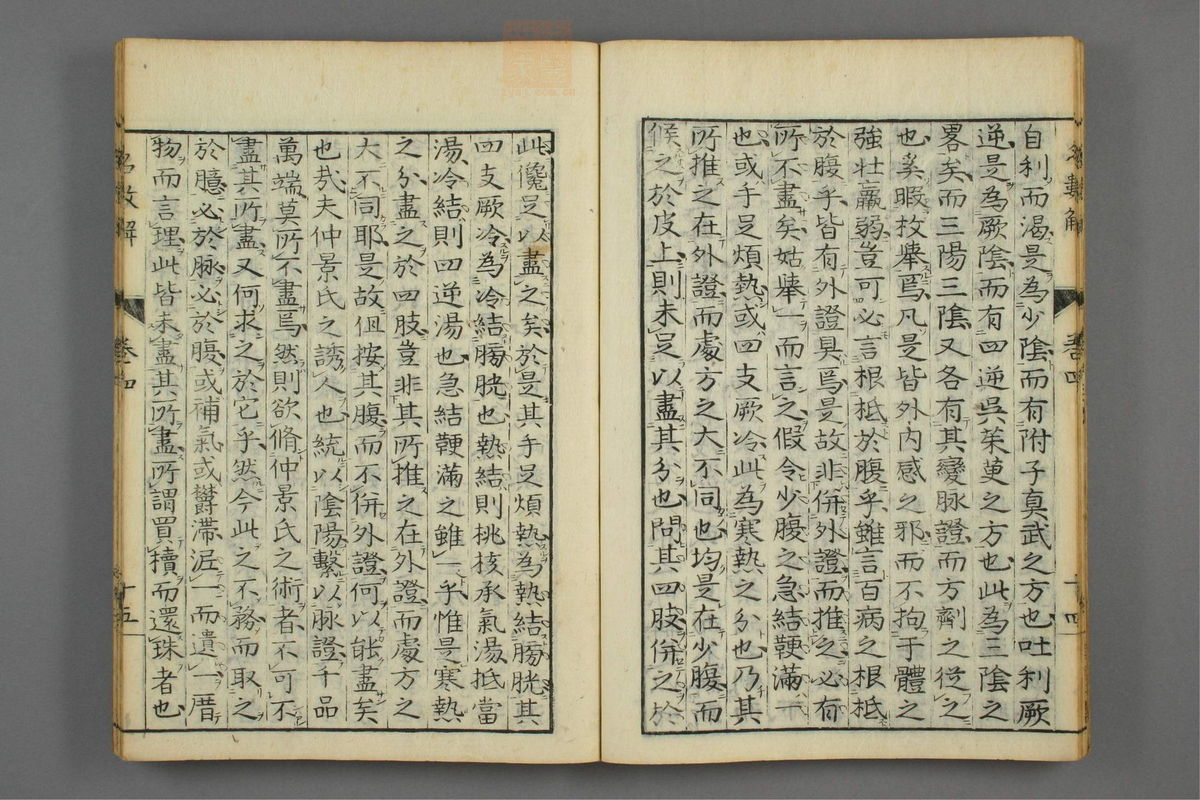 自利而渴是為少陰而有附子真武之方也吐利厥
逆是為厥陰而有四逆吳茱萸之方也此為三陰之
畧矣而三陽三陰又各有其變脉證而方劑之從之
也奚暇枚舉焉凡是皆外內感之邪而不拘于體之
強壯羸弱豈可必言根柢於腹乎雖言百病之根柢
於腹乎皆有外證具焉是故非併外證而推之必有
所不盡矣姑舉一而言之假令少腹之急結鞕滿一
也或手足煩熱或四支厥冷此為寒熱之分也乃其
所推之在外證而處方之大不同也均是在少腹而
候之於皮上則未足以盡其分也問其四肢併之於
卷四
十四
此纔足以盡之矣於是其手足煩熱為熱結膀胱其
四支厥冷為冷結膀胱也熱結則桃核承氣湯抵當
湯冷結則四逆湯也急結鞕滿之雖一乎惟是寒熱
之分盡之於四肢豈非其所推之在外證而處方之
大不同耶是故但按其腹而不併外證何以能盡矣
也哉夫仲景氏之誘人也統以陰陽繫以脉證千品
萬端莫所不盡焉然則欲脩仲景氏之術者不可不
盡其所盡又何求之於它乎然今此之不務而取之
於臆必於脉必於腹或補氣或欝滯泥一而遺一厝
物而言理此皆未盡其所盡所謂買犢而還珠者也
卷四
十五